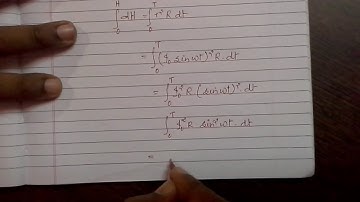 ∫₀ᴴ dH = ∫₀ᵀ i² R dt
= ∫₀ᵀ (i₀ sin ωt)² R . dt
= ∫₀ᵀ i₀² R (sin ωt)² . dt
∫₀ᵀ i₀² R sin² ωt . dt
=